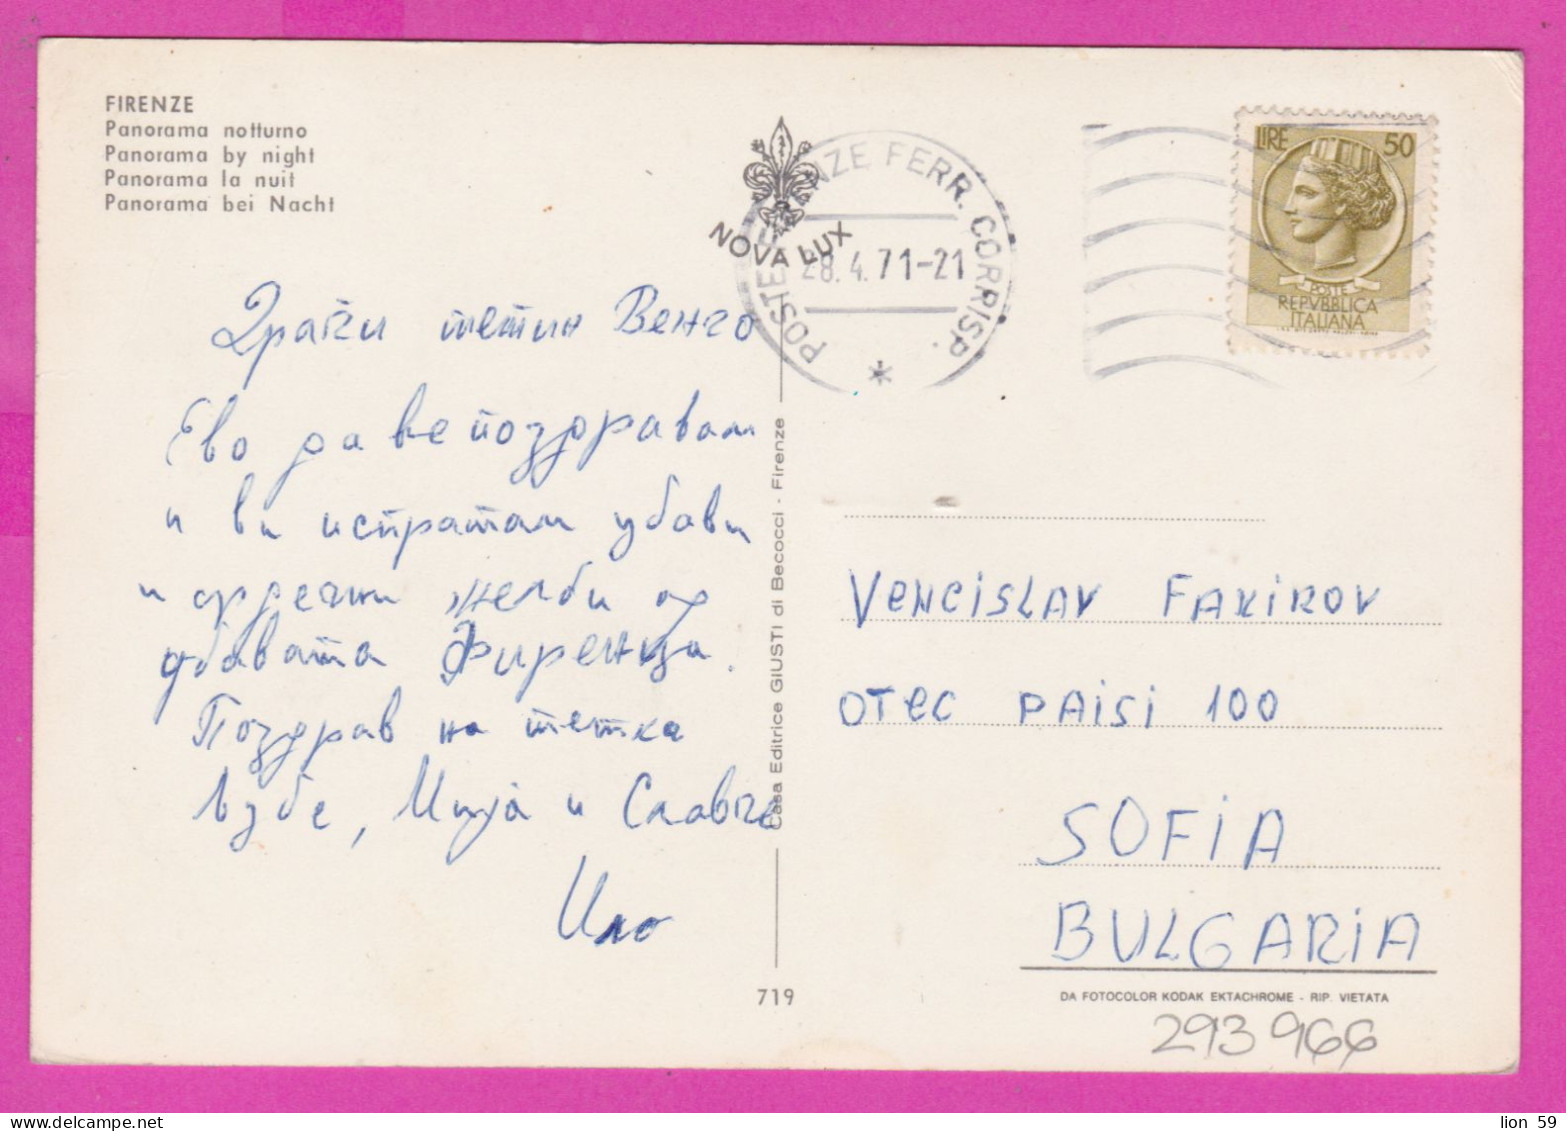 FIRENZE
Panorama notturno
Panorama by night
Panorama la nuit
Panorama bei Nacht
NOVA LUX
POSTE FERR. CORRISP.
28.4.71-21
LIRE 50
POSTE
REPVBBLICA
ITALIANA
Драги тетин Венчо
Ево да ве поздравам
и ви испратам убави
и срдечни желби од
убавата Фиренца.
Поздрав на тетка
Љубе, Мија и Славче
Ило
Casa Editrice GIUSTI di Becocci - Firenze
719
VENCISLAV FAKIROV
OTEC PAISI 100
SOFIA
BULGARIA
DA FOTOCOLOR KODAK EKTACHROME - RIP. VIETATA
293966
lion 59